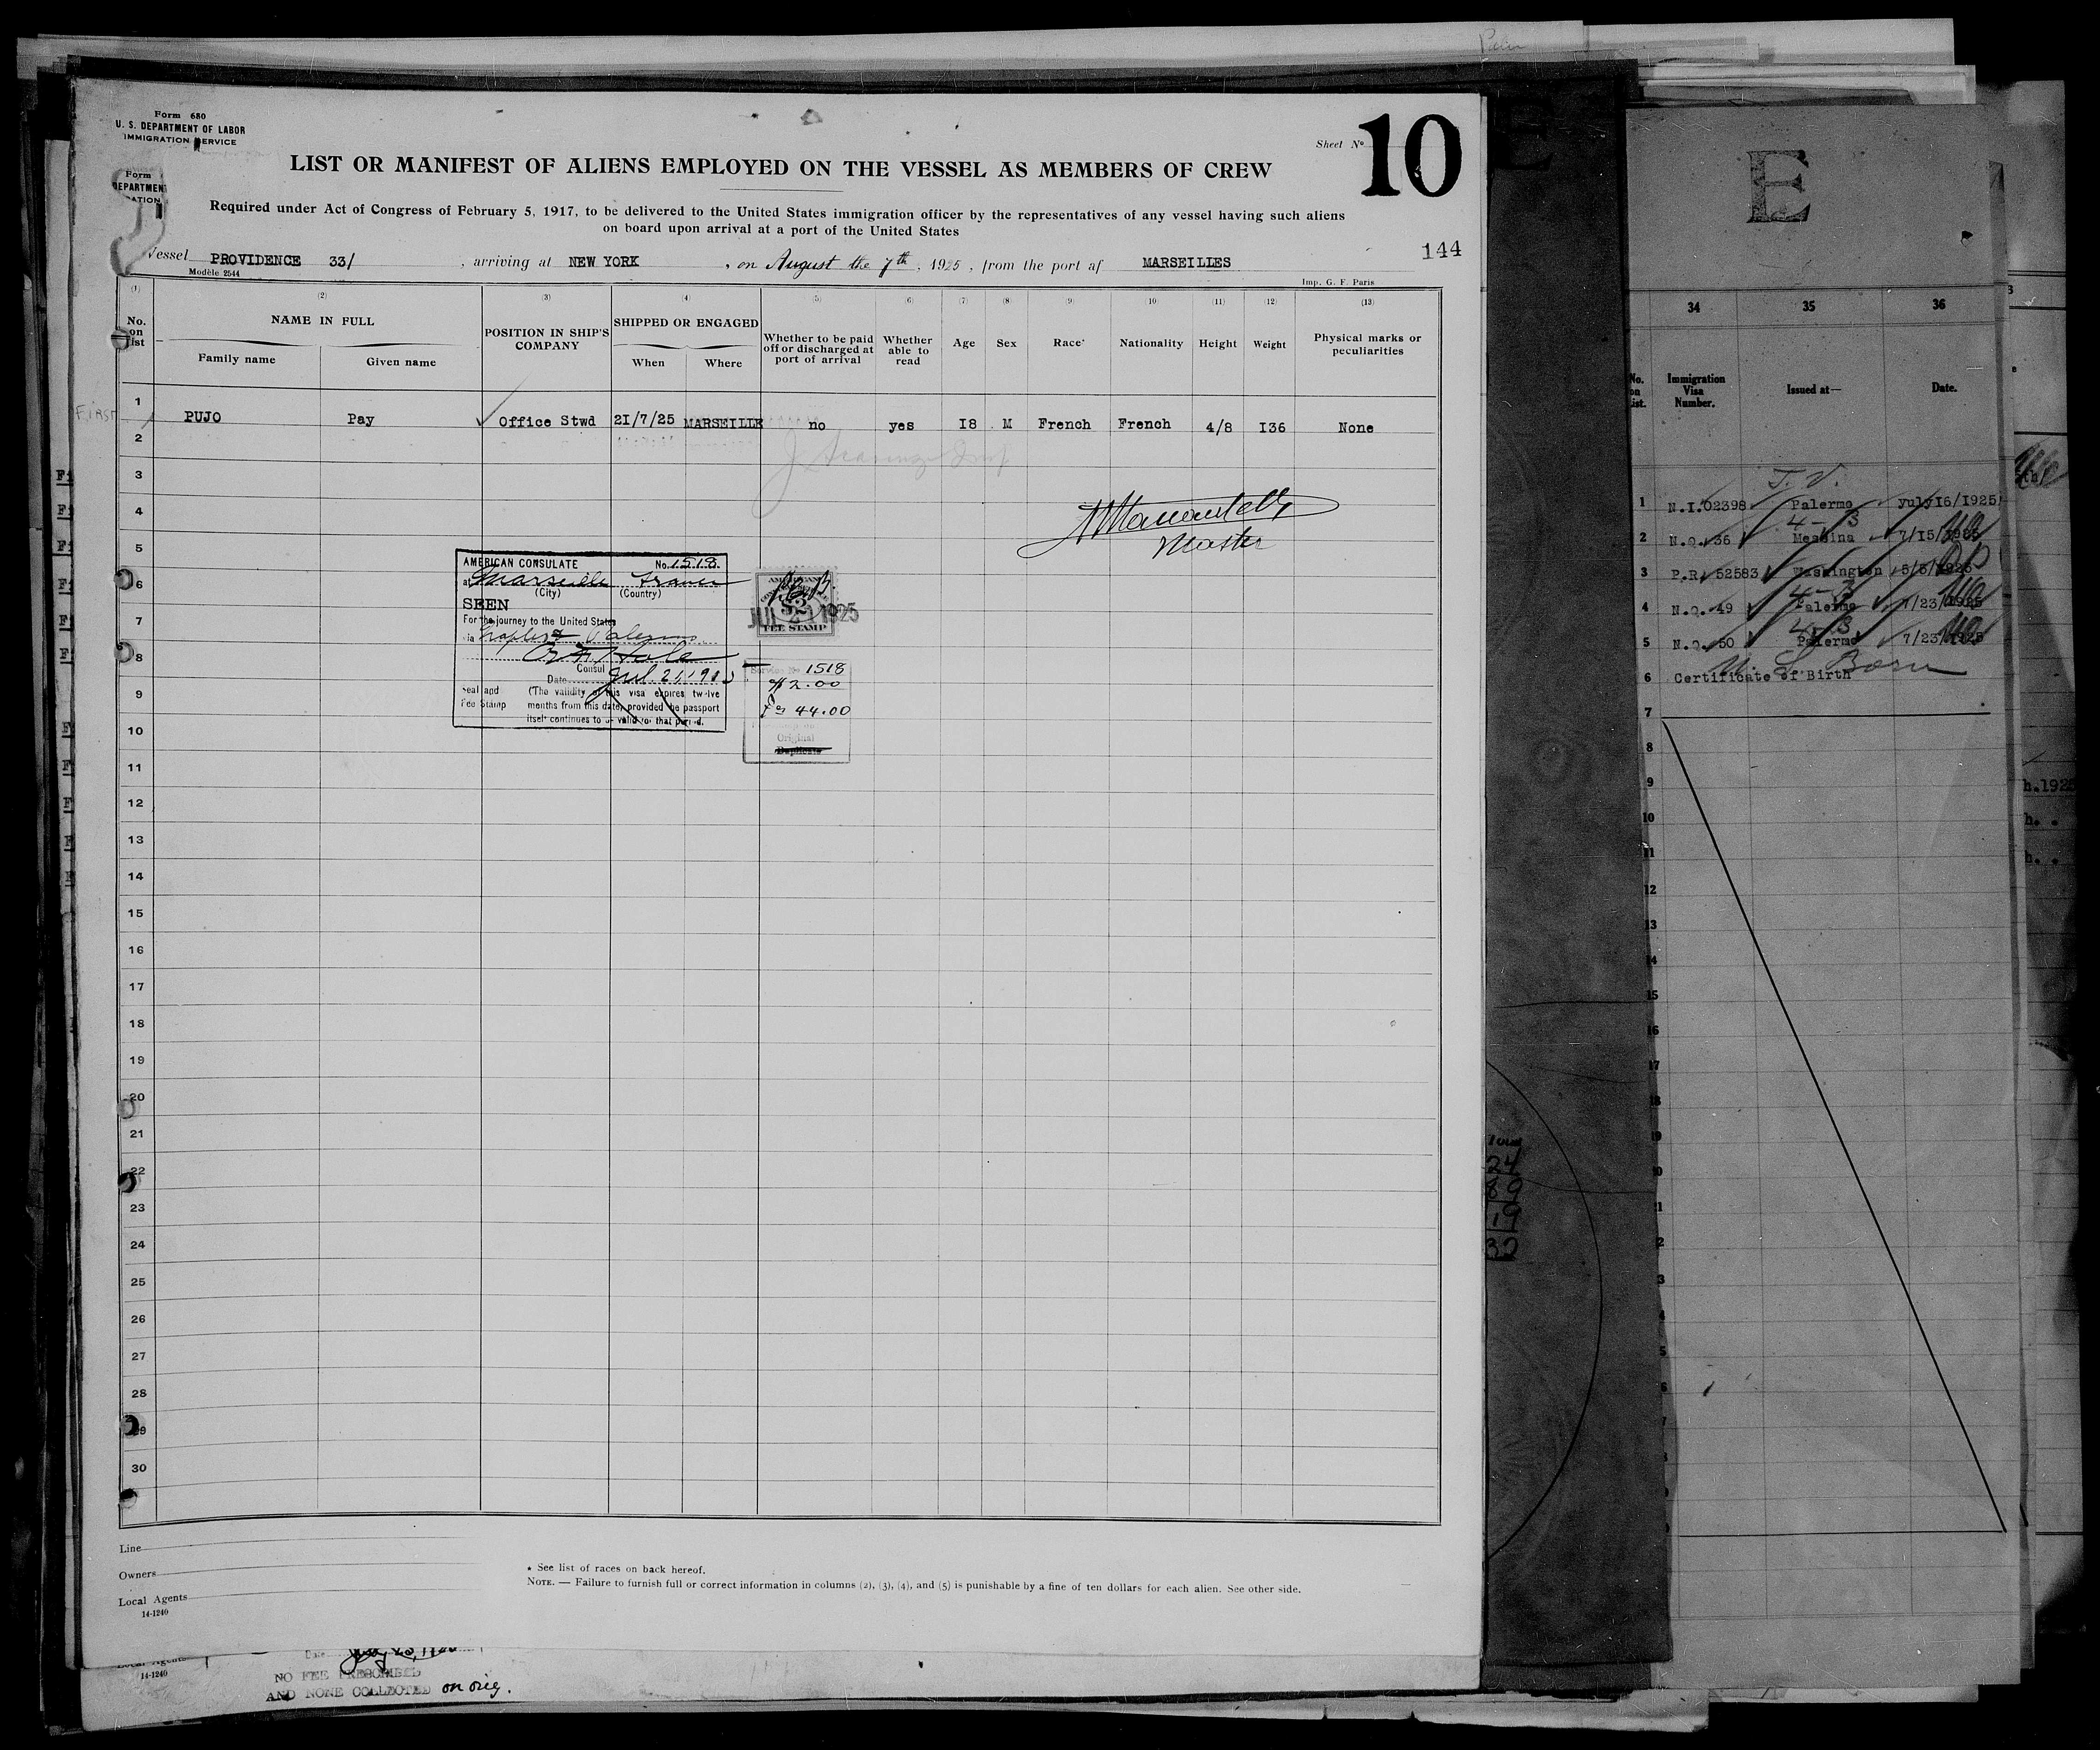 Form 680
U. S. DEPARTMENT OF LABOR
IMMIGRATION SERVICE
Sheet No 10
LIST OR MANIFEST OF ALIENS EMPLOYED ON THE VESSEL AS MEMBERS OF CREW
Required under Act of Congress of February 5, 1917, to be delivered to the United States immigration officer by the representatives of any vessel having such aliens
on board upon arrival at a port of the United States
144
Vessel PROVIDENCE 33/ , arriving at NEW YORK , on August the 7th , 1925 , from the port af MARSEILLES
Modèle 2544
Imp. G. F. Paris
(1) (2) (3) (4) (5) (6) (7) (8) (9) (10) (11) (12) (13)
No. on list NAME IN FULL Family name Given name POSITION IN SHIP'S COMPANY SHIPPED OR ENGAGED When Where Whether to be paid off or discharged at port of arrival Whether able to read Age Sex Race* Nationality Height Weight Physical marks or peculiarities
First
1 PUJO Pay Office Stwd 21/7/25 MARSEILLE no yes 18 M French French 4/8 136 None
2
3
4
5
Master
6
7
8
9
10
11
12
13
14
15
16
17
18
19
20
21
22
23
24
25
26
27
28
29
30
AMERICAN CONSULATE No. 1518.
at Marseille France
(City) (Country)
SEEN
For the journey to the United States
via Naples & Palermo
Consul
Date Jul. 21, 1925
Seal and Fee Stamp
(The validity of this visa expires twelve
months from this date, provided the passport
itself continues to be valid for that period.
$2
FEE STAMP
JUL 21 1925
Service No 1518
$2.00
Fcs 44.00
Original
Duplicate
Line
Owners
Local Agents
14-1240
* See list of races on back hereof.
NOTE. — Failure to furnish full or correct information in columns (2), (3), (4), and (5) is punishable by a fine of ten dollars for each alien. See other side.
Local Agents
14-1240
Date
NO FEE PRESCRIBED
AND NONE COLLECTED on orig.
E
34 35 36
No. on List. Immigration Visa Number. Issued at— Date.
1 N.I. 02398 Palermo yuly 16/1925
2 N.Q. 36 Messina 7/15/1925
3 P.R. 52583 Washington 5/5/1925
4 N.Q. 49 Palermo 7/23/1925
5 N.Q. 50 Palermo 7/23/1925
6 Certificate of Birth
U. S. Born
7
8
9
10
11
12
13
14
15
16
17
18
19